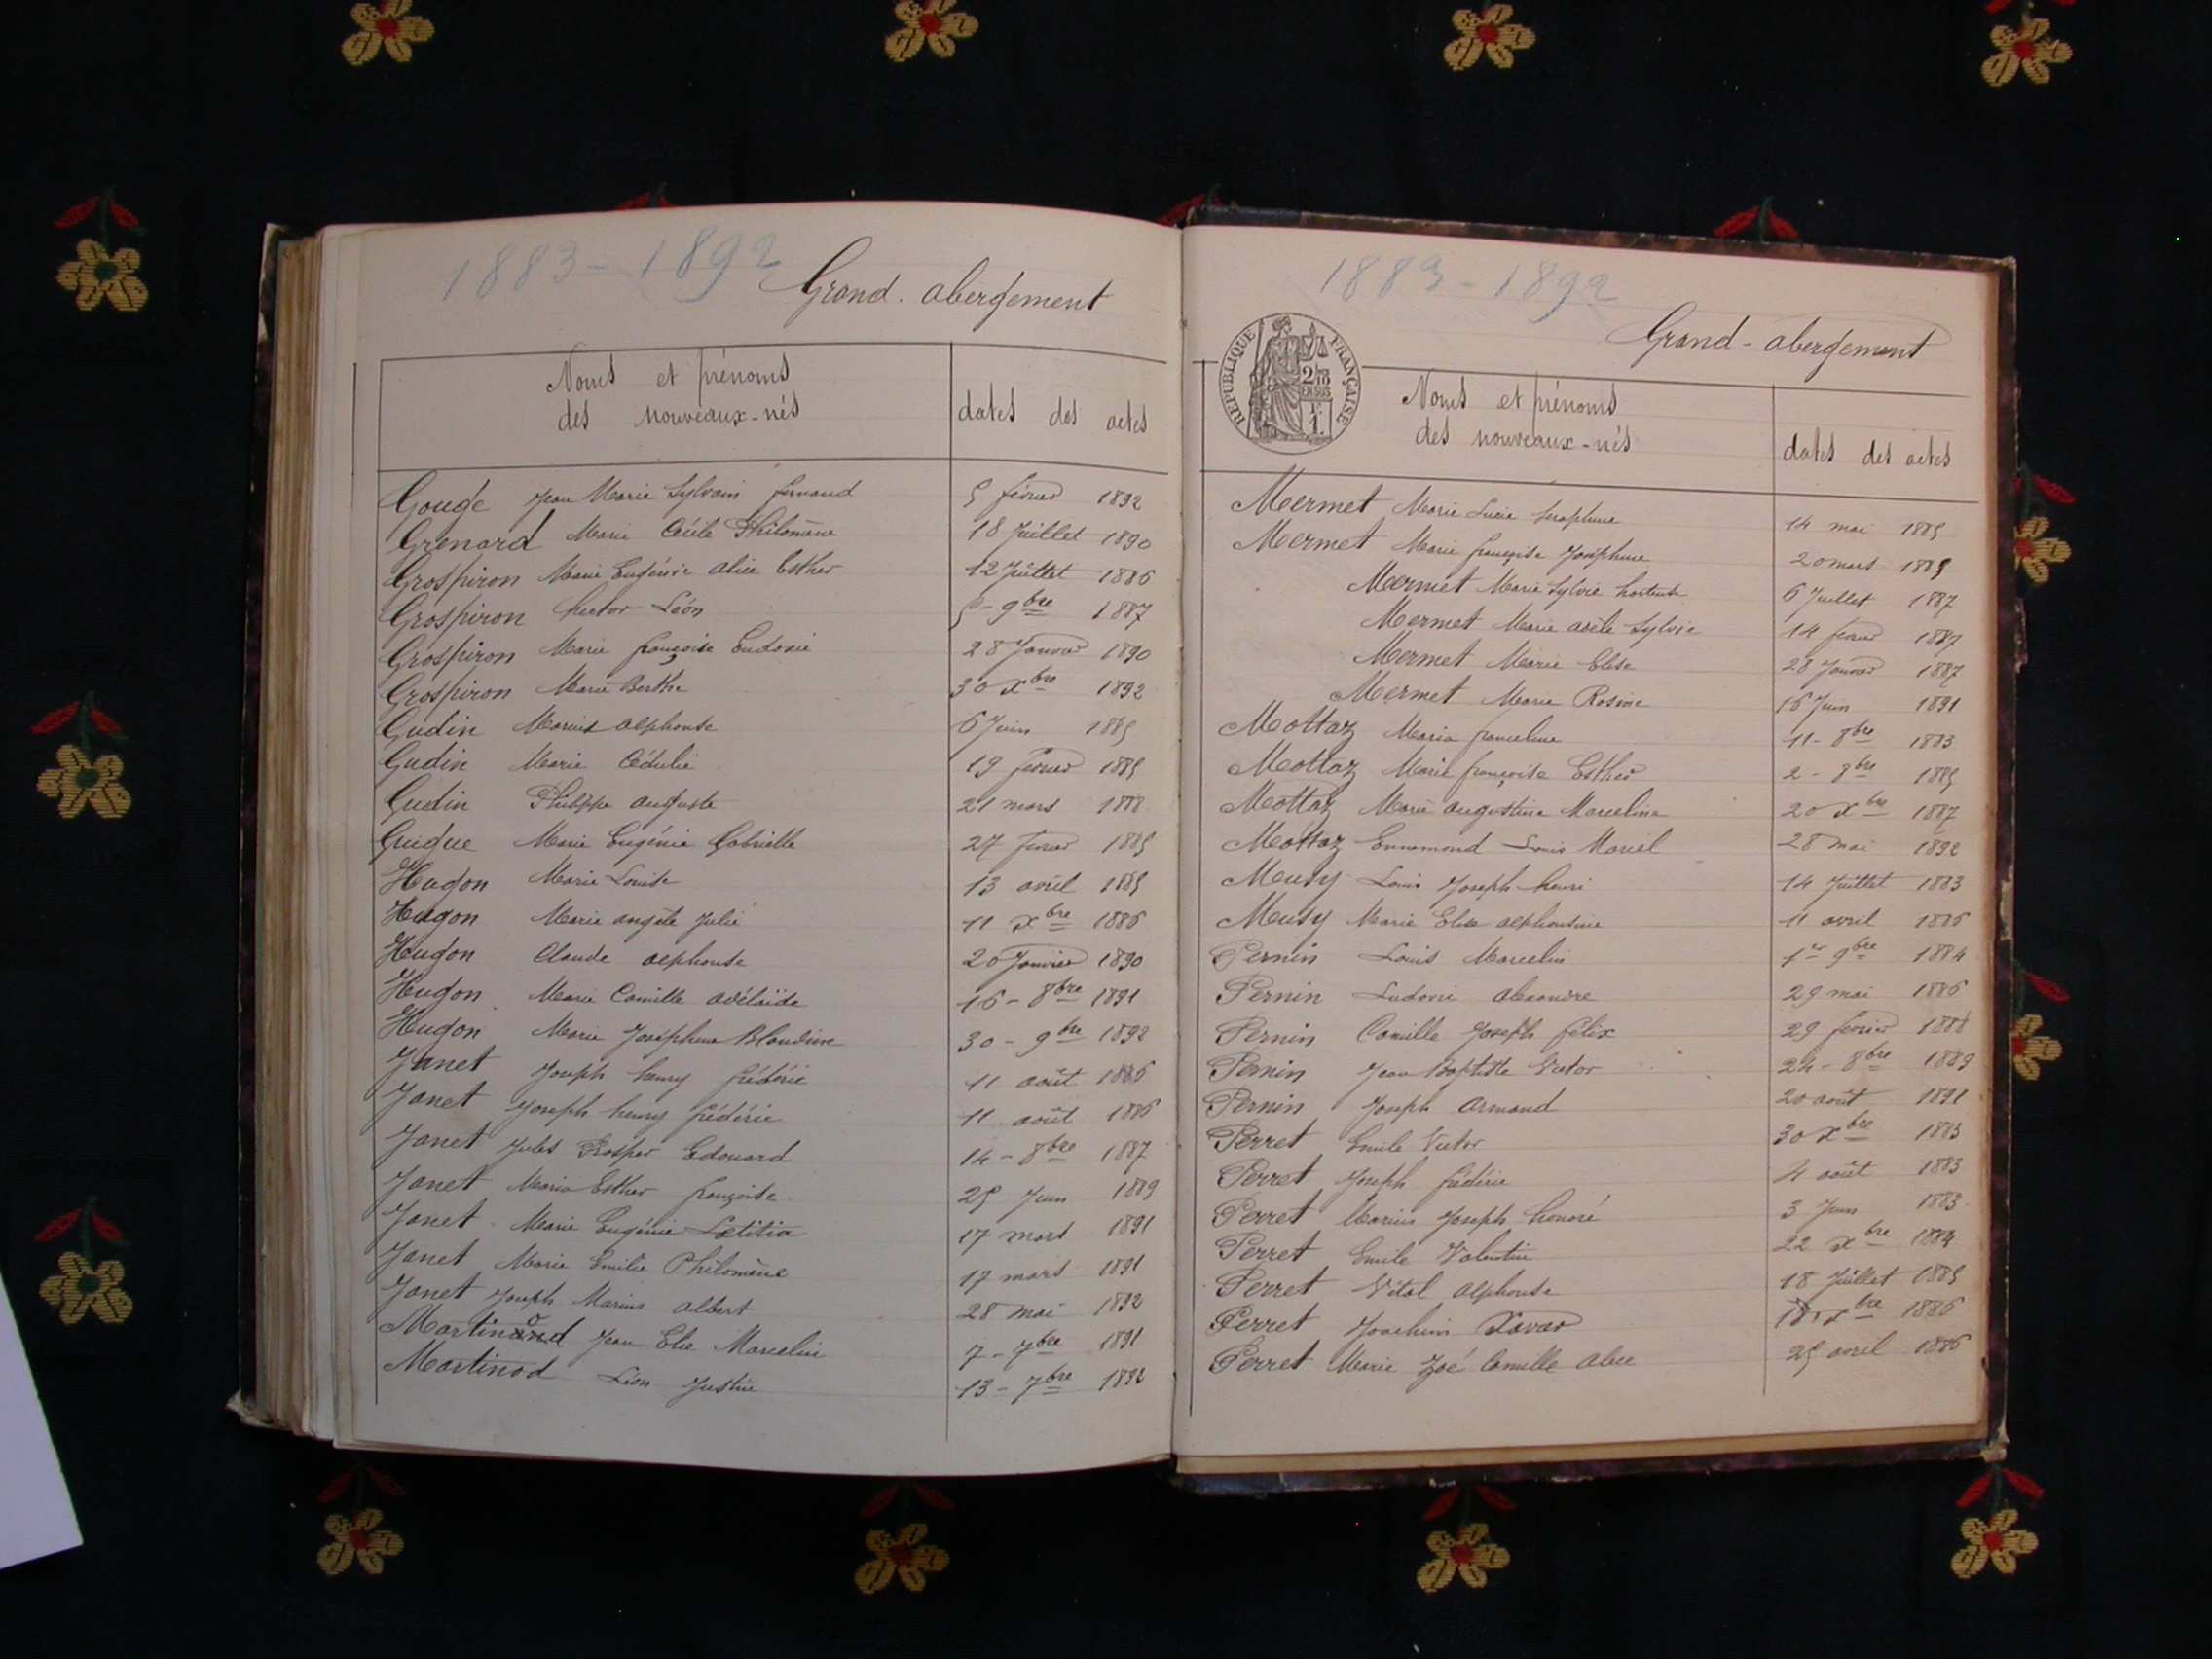 1883-1892
Grand-abergement
Noms et prénoms
des nouveaux-nés
dates des actes
Gouge Jean Marie Sylvain fernand 5 février 1892
Grenard Marie Cécile Philomène 18 Juillet 1890
Grospiron Marie Eugénie alice Esther 12 Juillet 1886
Grospiron hector Léon 5-9bre 1887
Grospiron Marie françoise Eudoxie 28 Janvier 1890
Grospiron Marie Berthe 30 Xbre 1892
Gudin Marius alphonse 6 Juin 1885
Gudin Marie Cédulie 19 février 1885
Gudin Philippe auguste 21 mars 1888
Guigue Marie Eugénie Gabrielle 27 février 1885
Hugon Marie Louise 13 avril 1885
Hugon Marie angèle Julie 11 Xbre 1886
Hugon Claude alphonse 20 Janvier 1890
Hugon Marie Camille adélaïde 16-8bre 1891
Hugon Marie Joséphine Blandine 30-9bre 1892
Janet Joseph henry frédéric 11 août 1886
Janet Joseph henry frédéric 11 août 1886
Janet Jules Prosper Edouard 14-8bre 1887
Janet Maria Esther françoise 25 Juin 1889
Janet Marie Eugénie Lœtitia 17 mars 1891
Janet Marie Emilie Philomène 17 mars 1891
Janet Joseph Marius albert 28 mai 1892
Martinod Jean Elie Marcelin 7-7bre 1891
Martinod Léon Justin 13-7bre 1892
1883-1892
Grand-abergement
RÉPUBLIQUE FRANÇAISE
2/10
EN SUS
1F.
Noms et prénoms
des nouveaux-nés
dates des actes
Mermet Marie Lucie Seraphine 14 mai 1885
Mermet Marie françoise Joséphine 20 mars 1885
Mermet Marie Sylvie hortense 6 Juillet 1887
Mermet Marie adèle Sylvie 14 février 1887
Mermet Marie Elise 28 Janvier 1887
Mermet Marie Rosine 16 Juin 1891
Mottaz Maria franceline 11-8bre 1883
Mottaz Marie françoise Esther 2-9bre 1885
Mottaz Marie augustine Marceline 20 Xbre 1887
Mottaz Ennemond Louis Marcel 28 mai 1892
Meusy Louis Joseph henri 14 Juillet 1883
Meusy Marie Elise alphonsine 11 avril 1886
Pernin Louis Marcelin 1er 9bre 1884
Pernin Ludovic alexandre 29 mai 1886
Pernin Camille Joseph félix 29 février 1888
Pernin Jean Baptiste Victor 24-8bre 1889
Pernin Joseph armand 20 août 1891
Perret Emile Victor 30 Xbre 1883
Perret Joseph frédéric 4 août 1883
Perret Marius Joseph honoré 3 Juin 1883
Perret Emile Valentin 22 Xbre 1884
Perret Vital alphonse 18 Juillet 1885
Perret Joachim Xavier Xbre 1886
Perret Marie Zoé Camille alice 25 avril 1886